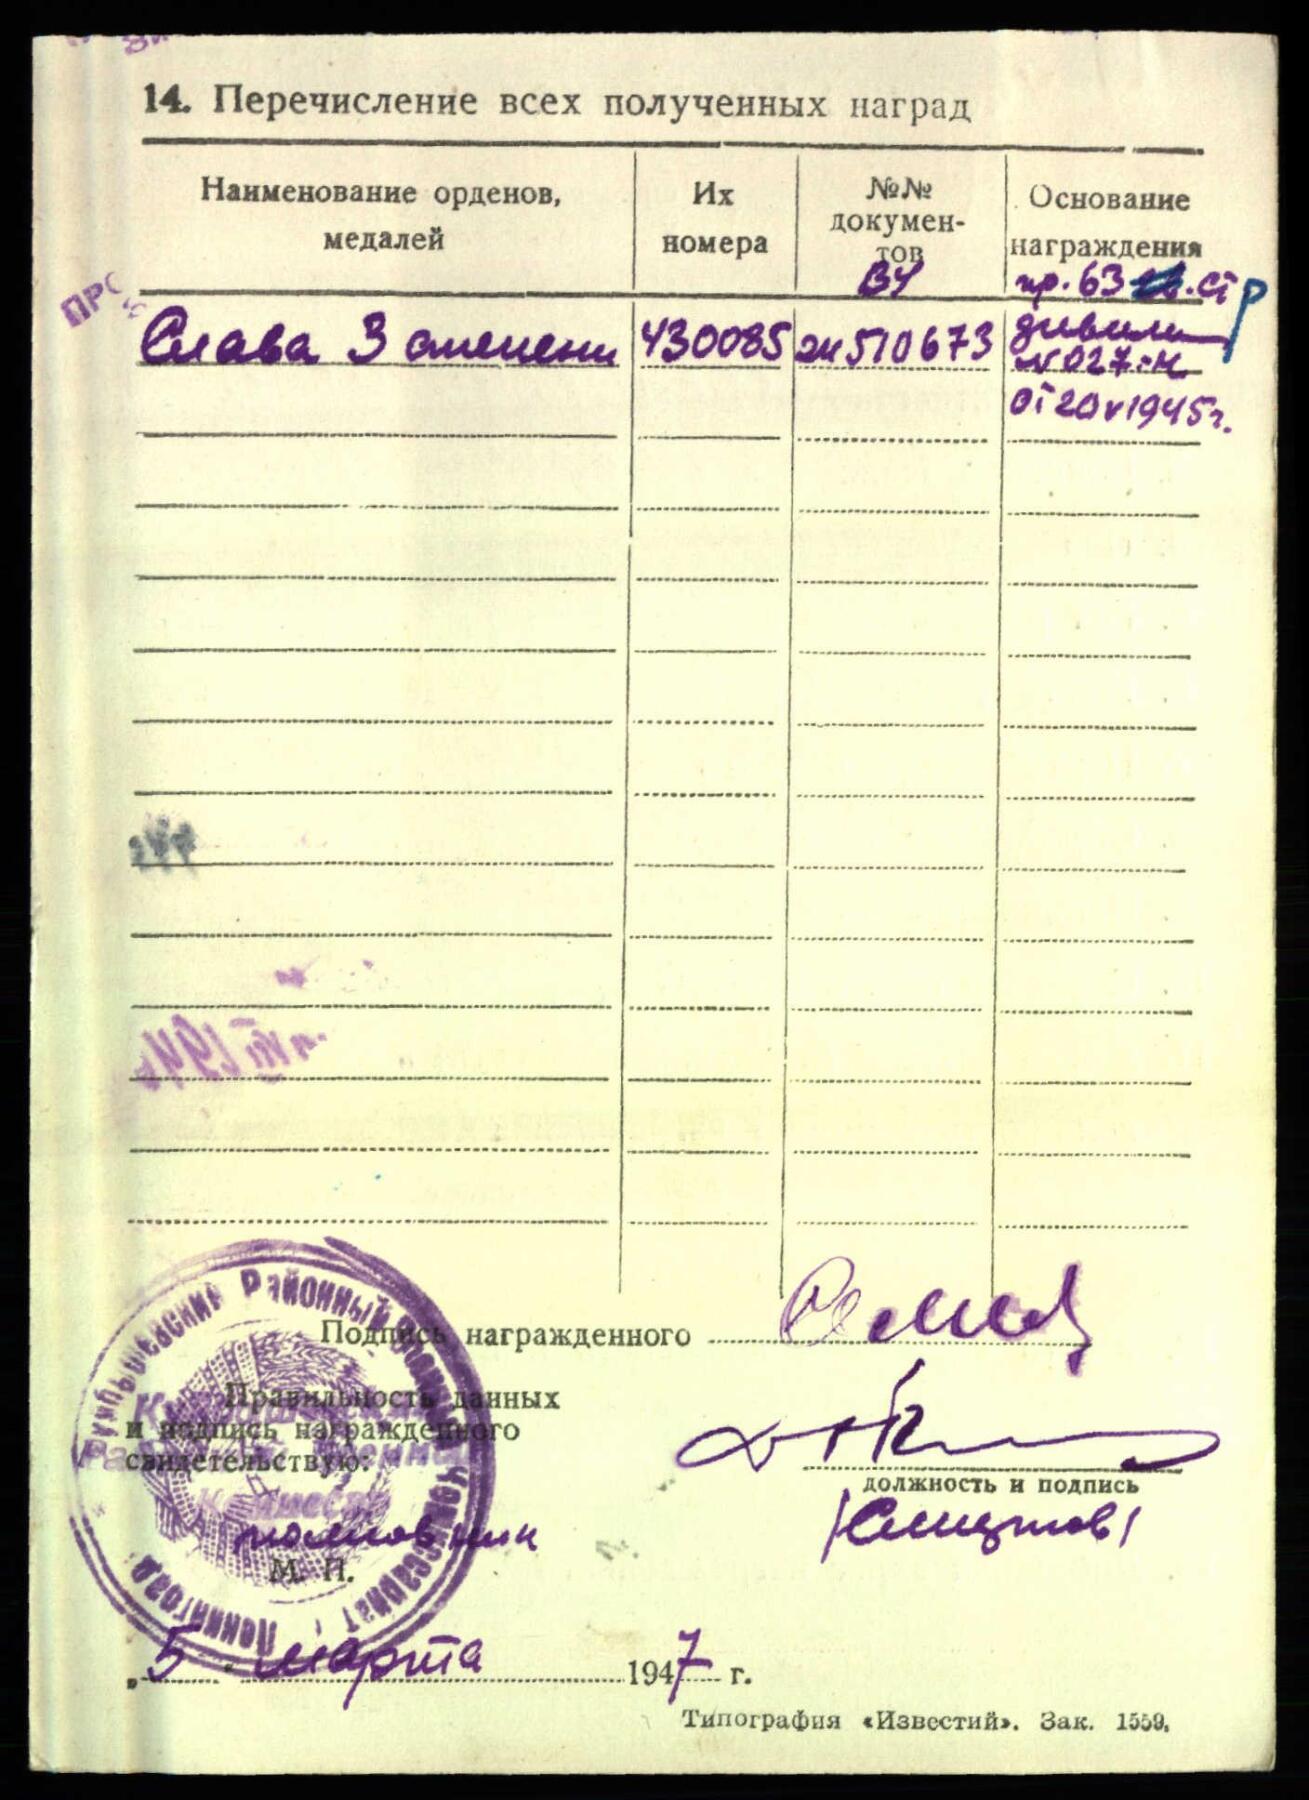 14. Перечисление всех полученных наград
Наименование орденов, медалей
Их номера
№№ докумен-
тов
Основание награждения
ВУ
пр. 63 ст
Слава 3 степени 430085 510673 дивизии
N 027-н
от 20 V 1945 г.
Подпись награжденного
Правильность данных
и подпись награжденного
свидетельствую:
должность и подпись
полковник
М. П.
Куйбышевский Районный Военный Комиссариат г. Ленинград
Куйбышевский
Районный Военный
Комиссар
„5“ марта 1947 г.
Типография «Известий». Зак. 1559.